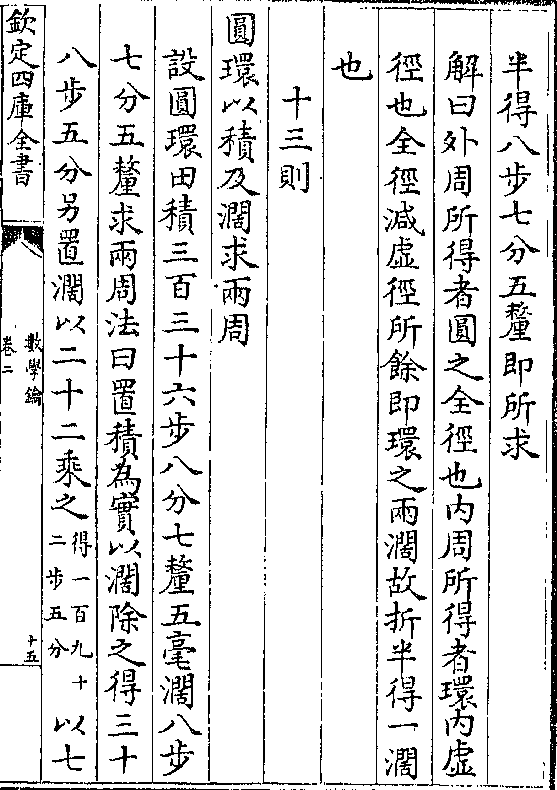 半得八步七分五釐即所求
解曰外周所得者圓之全徑也内周所得者環内虛
徑也全徑減虛徑所餘即環之兩濶故折半得一濶
也
十三則
圓環以積及濶求兩周
設圓環田積三百三十六步八分七釐五毫濶八步
七分五釐求兩周法曰置積為實以濶除之得三十
八步五分另置濶以二十二乘之得一百九十二步五分以七
欽定四庫全書
數學鑰
卷二
十五